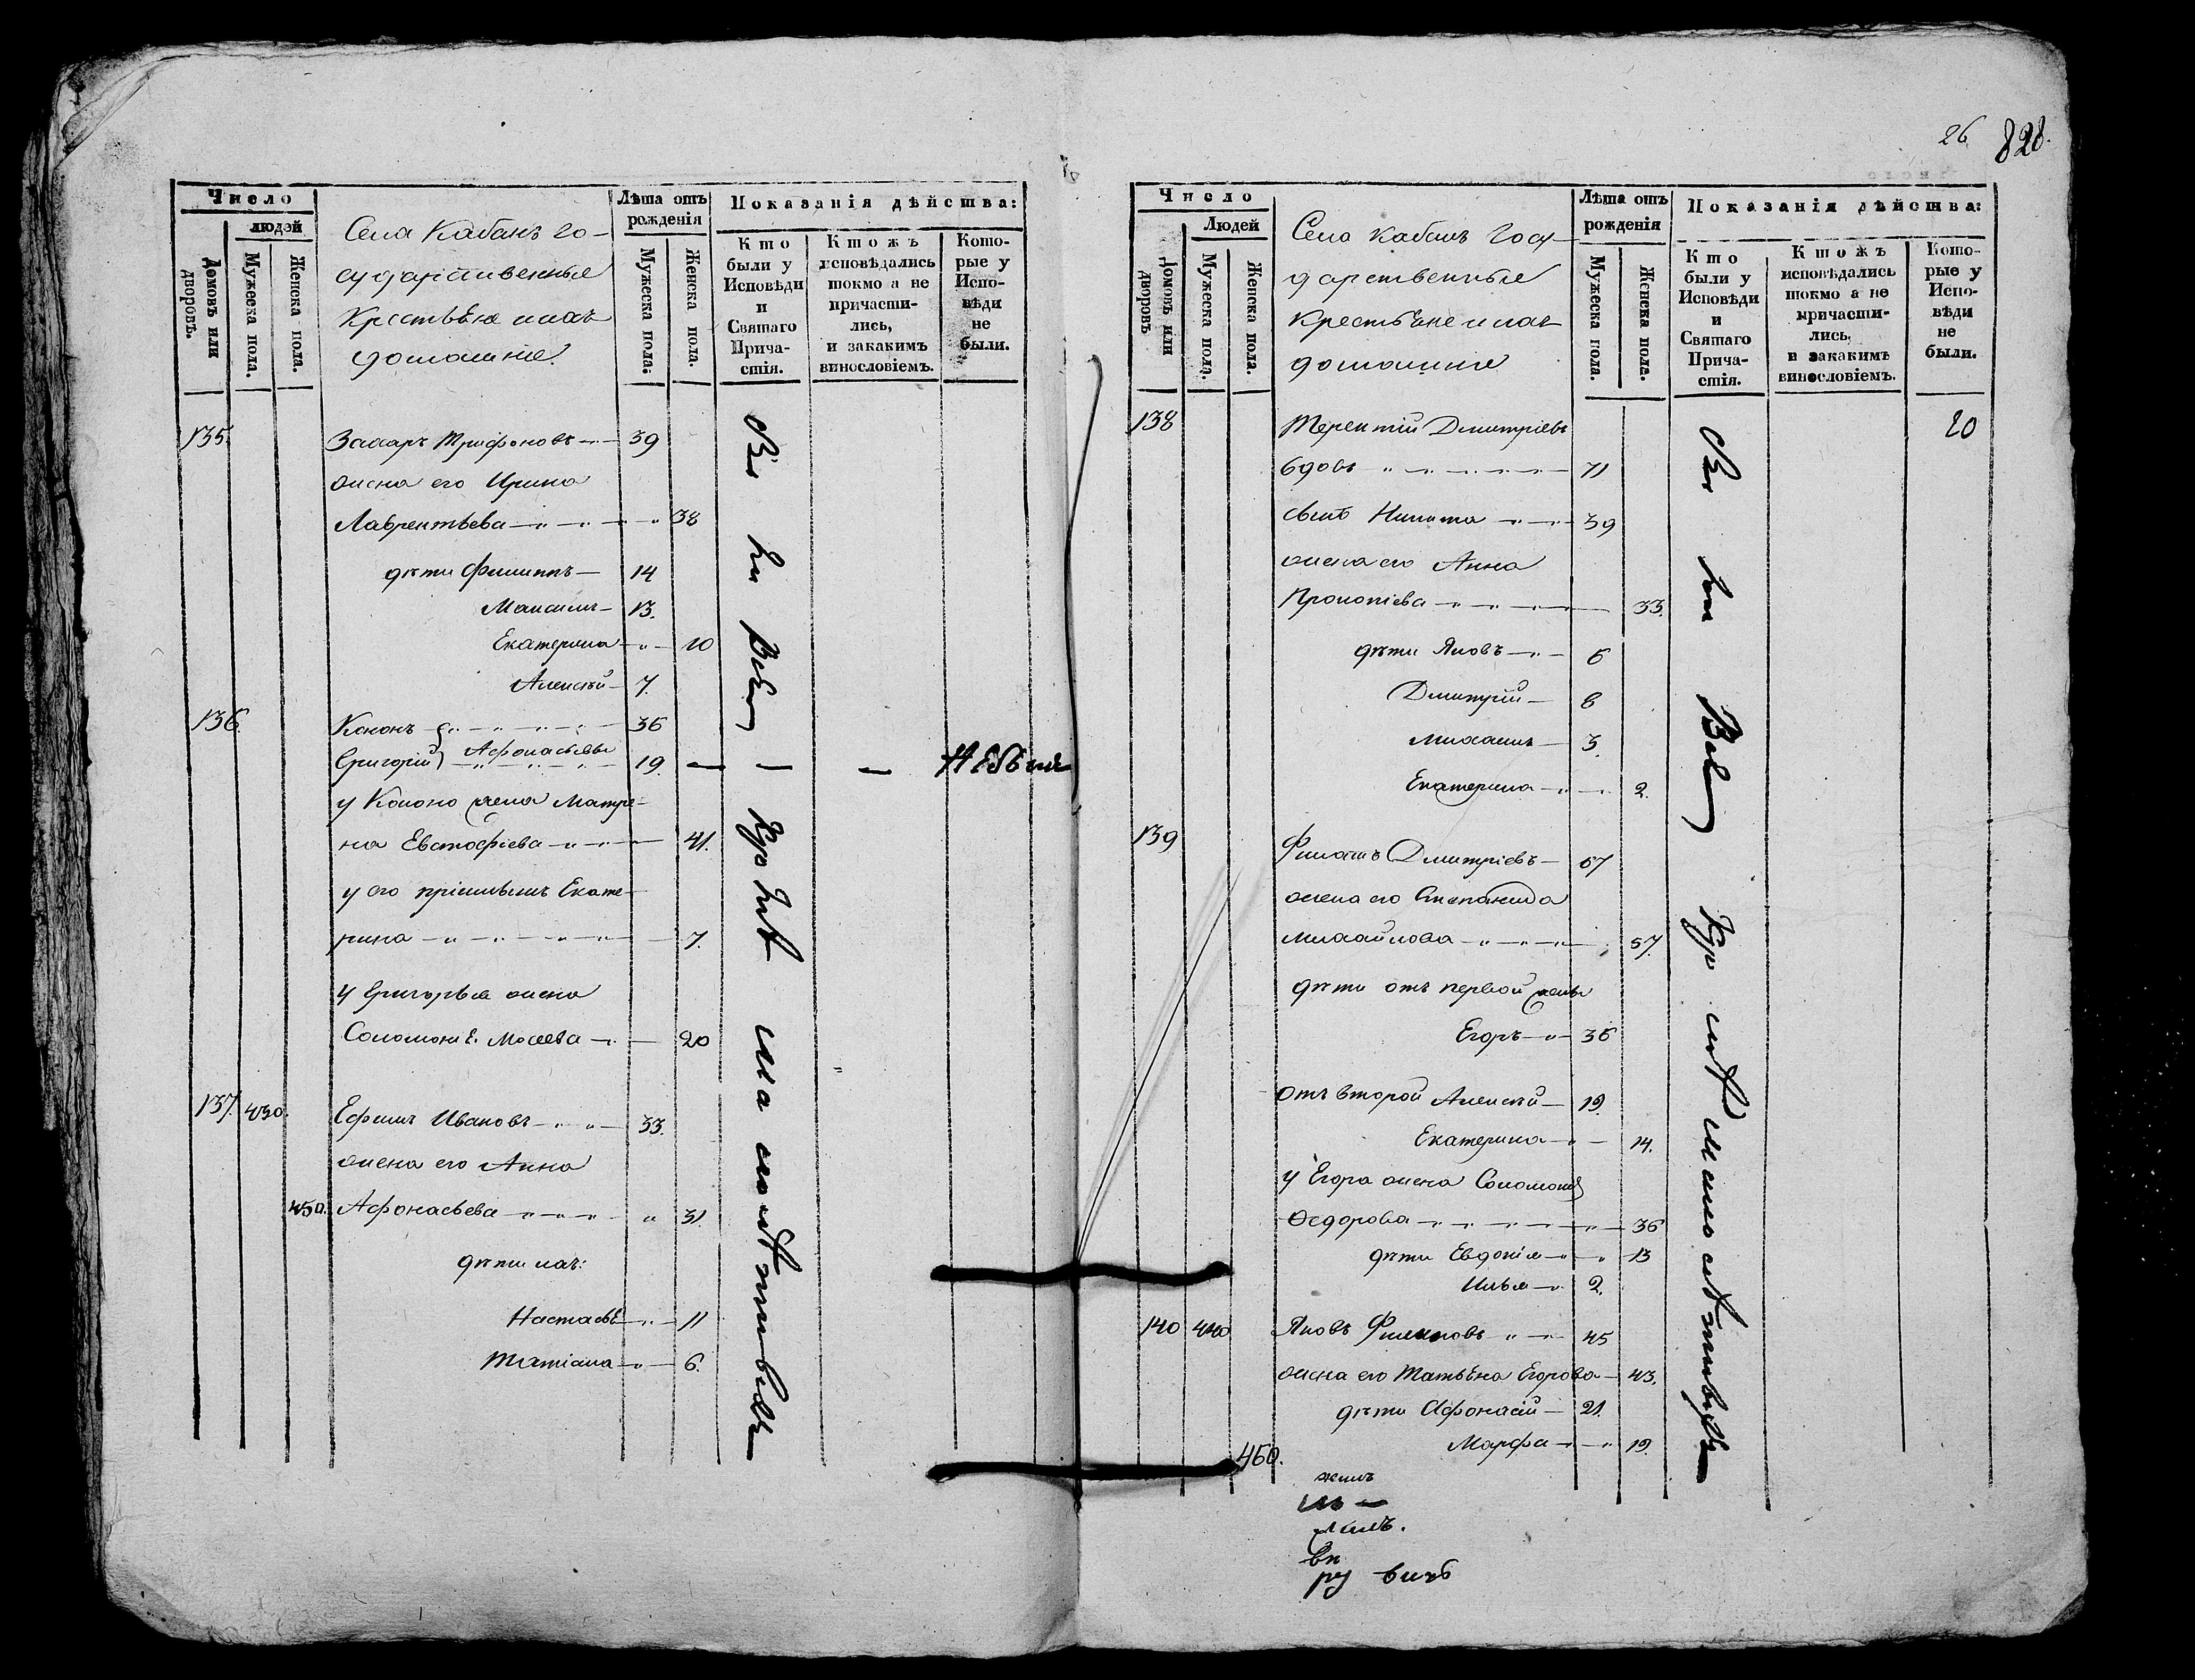 Число
людей
Домовъ или дворовъ.
Мужеска пола.
Женска пола.
Села Кабанъ го-
сударственныя
Крестьѣне и ихъ
домошніе
Лѣта отъ
рожденія
Мужеска пола.
Женска пола.
Показанія дѣйства:
Кто
были у
Исповѣди
и
Святаго
Прича-
стія.
Ктожъ
исповѣдались
токмо а не
причасти-
лись,
и закакимъ
винословіемъ.
Кото-
рые у
Испо-
вѣди
не
были.
135. Захаръ Трифоновъ 39
жена его Ирина
Лаврентьева 38
дѣти Филиппъ 14
Максимъ 13.
Екатерина 10
Алексѣй 7.
136. Кононъ 36
Григорій Афонасьевы 19. Небылъ
у Конона жена Матре-
на Евстафіева 41.
у его пріимышъ Екате-
рина 7.
у Григорья жена
Соломоніѣ Мосеева 20
137. 430. Ефимъ Ивановъ 33.
жена его Анна
450. Афонасьева 31.
дѣти ихъ:
Настасьѣ 11
Татіана 6.
26 828.
Число
Людей
Домовъ или дворовъ
Мужеска пола.
Женска пола.
Село Кабанъ Госу-
дарственные
Крестьѣне и ихъ
домошніе
Лѣта отъ
рожденія
Мужеска пола.
Женска пола.
Показанія дѣйства:
Кто
были у
Исповѣди
и
Святаго
Прича-
стія.
Ктожъ
исповѣдались
токмо а не
причасти-
лись,
и закакимъ
винословіемъ.
Кото-
рые у
Испо-
вѣди
не
были.
138 Терентій Дмитріевъ 20
вдовъ 71
сынъ Никита 39
жена его Анна
Прокопіева 33.
дѣти Яковъ 6
Дмитрій 6
Михаилъ 3.
Екатерина 2.
139 Филатъ Дмитріевъ 67
жена его Степанида
Михайлова 57.
дѣти отъ первой жены
Егоръ 36
Отъ второй Алексѣй 19.
Екатерина 14.
у Егора жена Соломоніѣ
Федорова 36
дѣти Евдокія 13
Илья 2.
140 440 Яковъ Филиповъ 45
жена его Татьѣна Егорова 43.
дѣти Афонасій 21.
Марфа 19.
460.